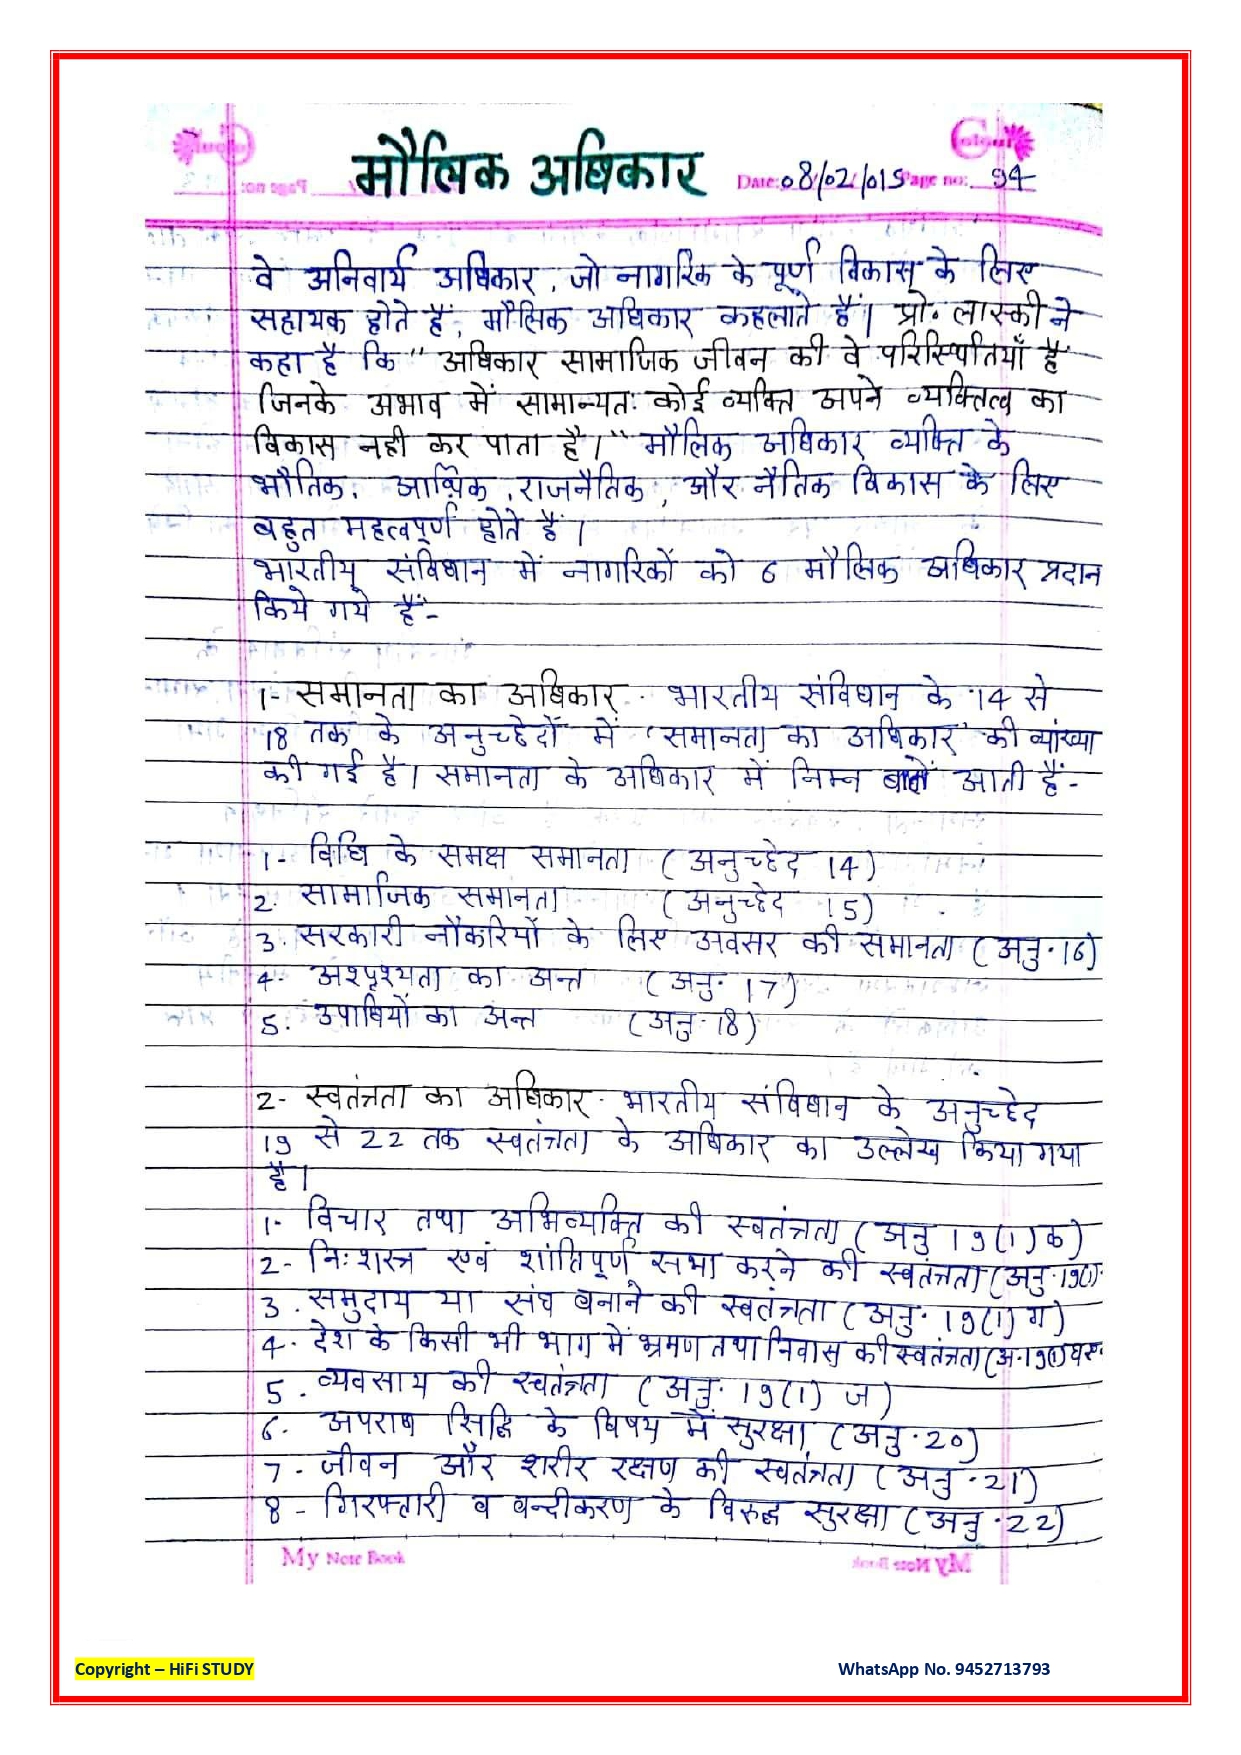 मौलिक अधिकार
Date: 08/02/015 Page no: 94
वे अनिवार्य अधिकार, जो नागरिक के पूर्ण विकास के लिए
सहायक होते हैं, मौलिक अधिकार कहलाते हैं। प्रो॰ लास्की ने
कहा है कि "अधिकार सामाजिक जीवन की वे परिस्थितियाँ हैं
जिनके अभाव में सामान्यतः कोई व्यक्ति अपने व्यक्तित्व का
विकास नही कर पाता है।" मौलिक अधिकार व्यक्ति के
भौतिक, आर्थिक, राजनैतिक, और नैतिक विकास के लिए
बहुत महत्वपूर्ण होते हैं।
भारतीय संविधान में नागरिकों को 6 मौलिक अधिकार प्रदान
किये गये हैं-
1- समानता का अधिकार - भारतीय संविधान के 14 से
18 तक के अनुच्छेदों में 'समानता का अधिकार' की व्यांख्या
की गई है। समानता के अधिकार में निम्न बातें आती हैं-
1- विधि के समक्ष समानता (अनुच्छेद 14)
2. सामाजिक समानता (अनुच्छेद 15)
3. सरकारी नौकरियों के लिए अवसर की समानता (अनु. 16)
4- अश्पृश्यता का अन्त (अनु. 17)
5. उपाधियों का अन्त (अनु. 18)
2- स्वतंत्रता का अधिकार - भारतीय संविधान के अनुच्छेद
19 से 22 तक स्वतंत्रता के अधिकार का उल्लेख किया गया
है।
1- विचार तथा अभिव्यक्ति की स्वतंत्रता (अनु 19(1) क)
2- निःशस्त्र एवं शांतिपूर्ण सभा करने की स्वतंत्रता (अनु. 19(1).
3. समुदाय या संघ बनाने की स्वतंत्रता (अनु. 19(1) ग)
4- देश के किसी भी भाग में भ्रमण तथा निवास की स्वतंत्रता (अ. 19(1)
5. व्यवसाय की स्वतंत्रता (अनु. 19(1) ज)
6. अपराध सिद्धि के विषय में सुरक्षा (अनु. 20)
7- जीवन और शरीर रक्षण की स्वतंत्रता (अनु. 21)
8- गिरफ्तारी व बन्दीकरण के विरुद्ध सुरक्षा (अनु. 22)
My Note Book
Copyright – HiFi STUDY WhatsApp No. 9452713793